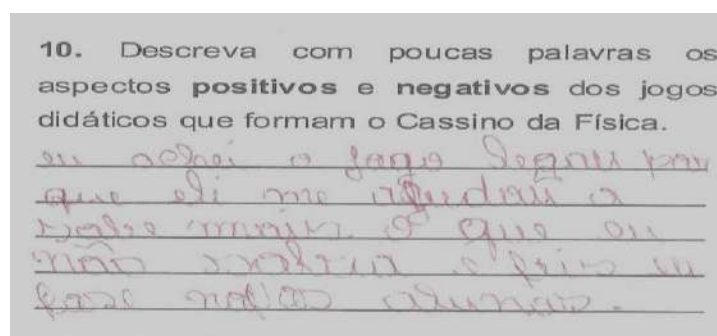 10. Descreva com poucas palavras os
aspectos positivos e negativos dos jogos
didáticos que formam o Cassino da Física.
eu achei o jogo legau por
que eli me ajudou a
sabe mais o que eu
não sabia e